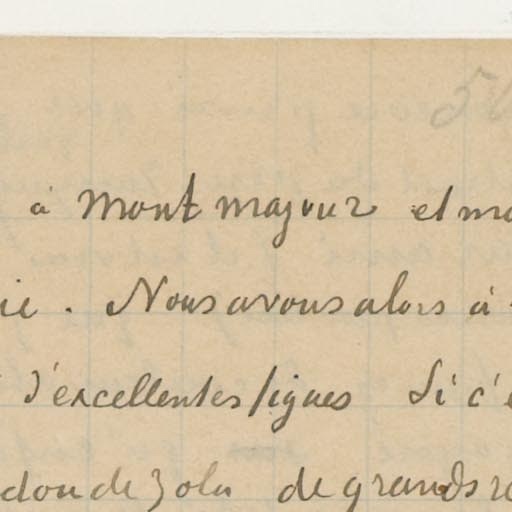 à Mont majour et
. Nous avons alors à
d'excellentes figues Si c'é
de Zola de grands